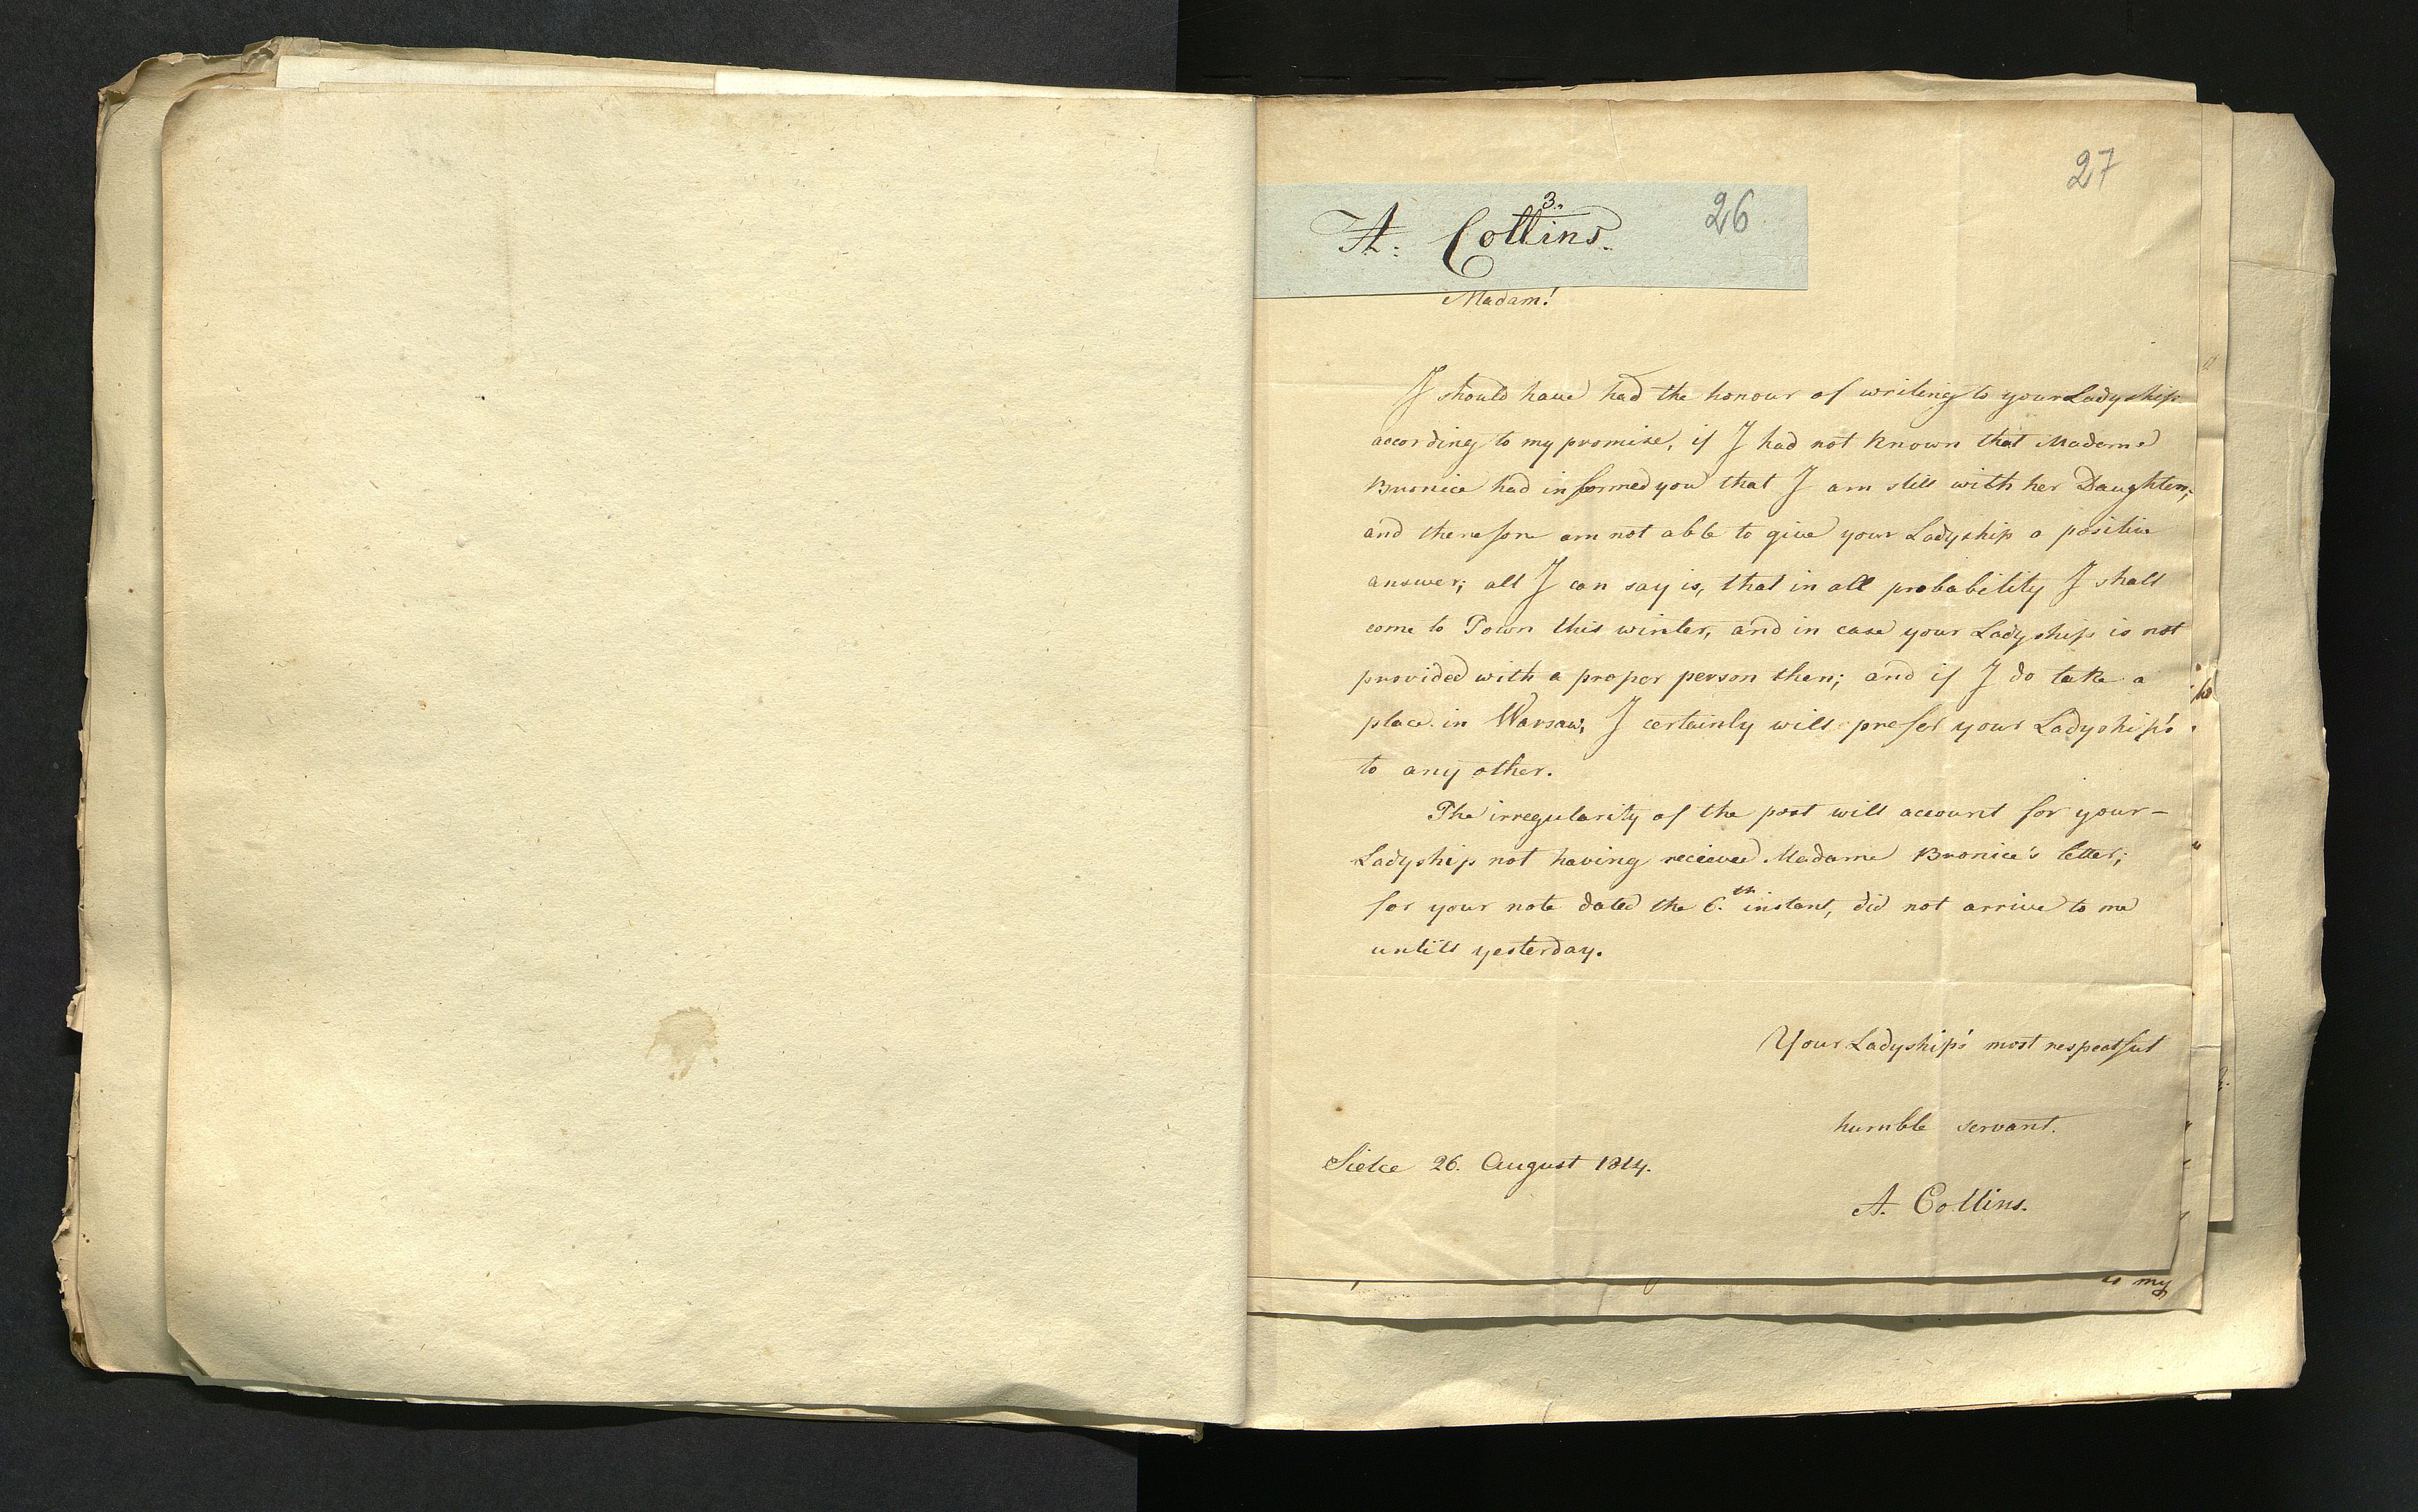 27
3.
26
A. Collins.
Madam!
I should have had the honour of writing to your Ladyship
according to my promise, if I had not known that Madame
Bronice had informed you that I am still with her Daughters;
and therefore am not able to give your Ladyship a positive
answer; all I can say is, that in all probability I shall
come to Town this winter, and in case your Ladyship is not
provided with a proper person then; and if I do take a
place in Warsaw, I certainly will prefer your Ladyship's
to any other.
The irregularity of the post will account for your-
Ladyship not having recieved Madame Bronice's letter;
for your note dated the 6.th instant, did not arrive to me
untill yesterday.
Your Ladyship's most respectful
humble servant.
Sielce 26. August 1814.
A. Collins.
my